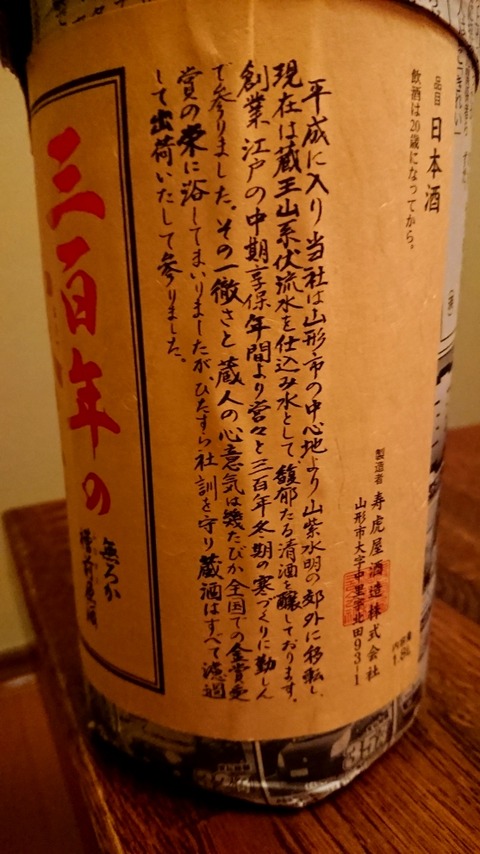 品目 日本酒
飲酒は20歳になってから。
製造者 寿虎屋酒造株式会社
山形市大字中里字北田93-1
内容量 1.8L
平成に入り当社は山形市の中心地より山紫水明の郊外に移転し、
現在は蔵王山系伏流水を仕込み水として馥郁たる清酒を醸しております。
創業江戸の中期享保年間より営々と三百年冬期の寒づくりに勤しん
で参りました。その一徹さと蔵人の心意気は幾たびか全国での金賞受
賞の栄に浴してまいりましたが、ひたすら社訓を守り蔵酒はすべて濾過
して出荷いたして参りました。
三百年の
無ろか